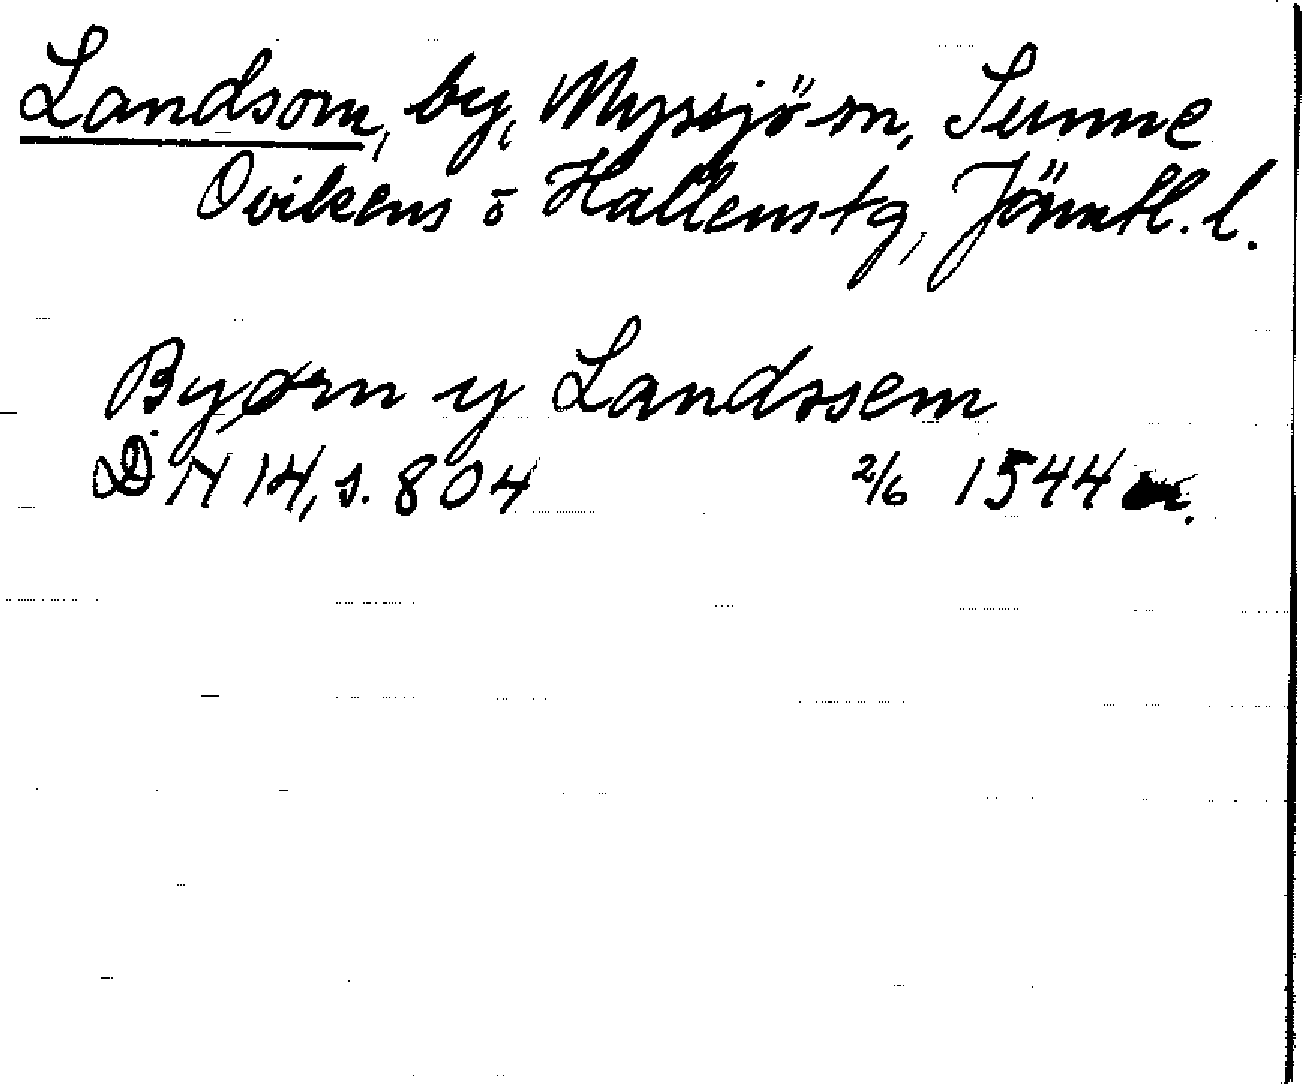 Landsom, by, Myssjö sn, Sunne
Ovikens o Hallens tg, Jämtl. l.
Byørn y Landssem
DN 14, s. 804 2/6 1544